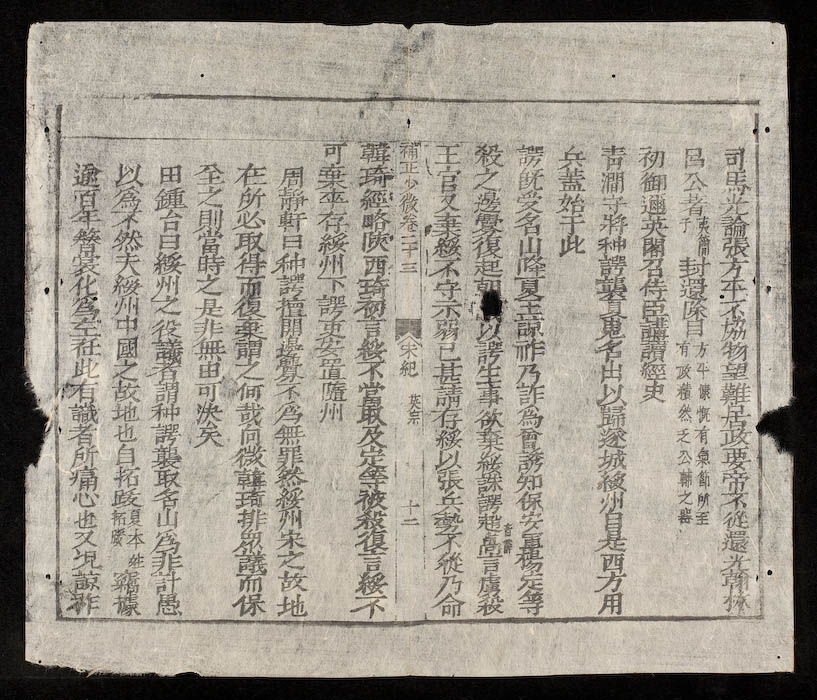 司馬光論張方平不協物望難居政要帝不從還光翰林
呂公著夷簡子封還除目方平慷慨有氣節所至有政積然之公輔之器
初御邇英閣召侍臣講讀經史
青澗守將种諤襲夏嵬名出以歸遂城綏州自是西方用
兵蓋始于此
諤既受名山降夏主諒祚乃詐為會誘知保安軍楊定等
殺之邊釁復起朝以諤生事欲棄綏誅諤趙卨言虜殺
王官又棄綏不守示弱已甚請存綏以張兵勢不從乃命
補正少微卷二十三 宋紀 英宗 十二
韓琦經略陝西琦初言綏不當取及定等被殺復言綏不
可棄卒存綏州下諤吏安置隨州
周靜軒曰种諤擅開邊釁不為無罪然綏州宋之故地
在所必取得而復棄謂之何哉向微韓琦排眾議而保
全之則當時之是非無由可決矣
田鍾台曰綏州之役議者謂种諤襲取名山為非計愚
以為不然夫綏州中國之故地也自拓跋夏本姓拓跋竊據
逾百年裳化為左衽此有識者所痛心也又況諒祚